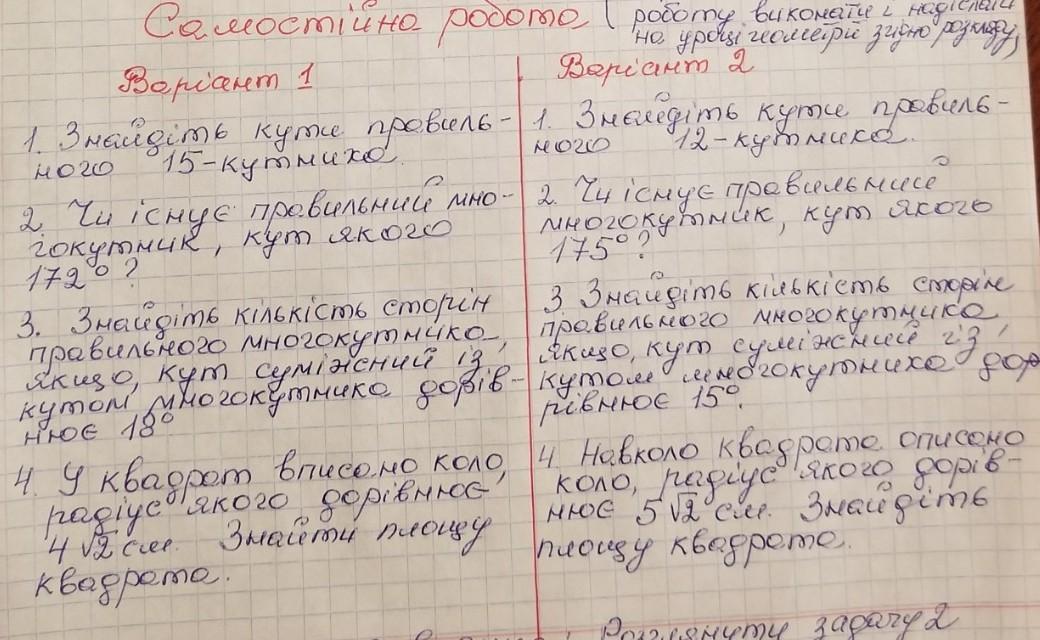 Самостійна робота (роботу виконати і надіслати
на уроці геометрії згідно розкладу)
Варіант 1
1. Знайдіть кути правиль-
ного 15-кутника.
2. Чи існує правильний мно-
гокутник, кут якого
172°?
3. Знайдіть кількість сторін
правильного многокутника,
якщо, кут суміжний із
кутом многокутника дорів-
нює 18°
4. У квадрат вписано коло,
радіус якого дорівнює
4√2 см. Знайти площу
квадрата.
Варіант 2
1. Знайдіть кути правиль-
ного 12-кутника.
2. Чи існує правильний
многокутник, кут якого
175°?
3 Знайдіть кількість сторін
правильного многокутника,
якщо, кут суміжний із
кутом многокутника до
рівнює 15°.
4. Навколо квадрата описано
коло, радіус якого дорів-
нює 5√2 см. Знайдіть
площу квадрата.
Розглянути задачу 2